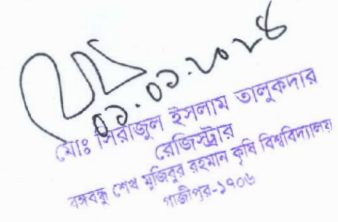 ০১.০১.২০২৪
মোঃ সিরাজুল ইসলাম তালুকদার
রেজিস্ট্রার
বঙ্গবন্ধু শেখ মুজিবুর রহমান কৃষি বিশ্ববিদ্যালয়
গাজীপুর-১৭০৬